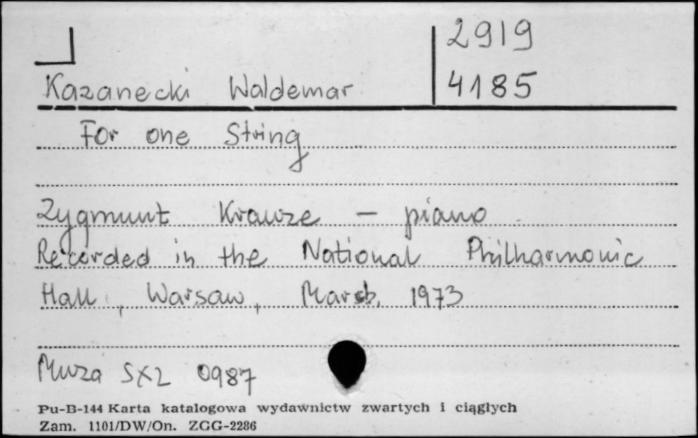 2919
Kazanecki Waldemar 4185
For one String
Zygmunt Krauze – piano
Recorded in the National Philharmonic
Hall, Warsaw, March, 1973
Muza SXL 0987
Pu-B-144 Karta katalogowa wydawnictw zwartych i ciągłych
Zam. 1101/DW/On. ZGG-2286